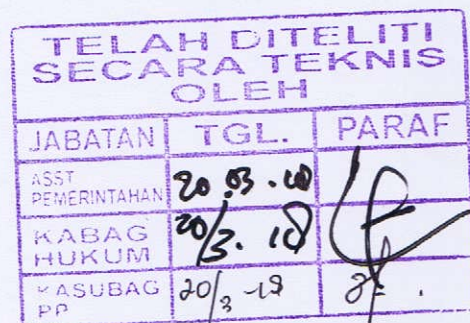 TELAH DITELITI
SECARA TEKNIS
OLEH
JABATAN TGL. PARAF
ASST
PEMERINTAHAN 20.03.18
KABAG
HUKUM 20/3.18
KASUBAG
PP 20/3-18